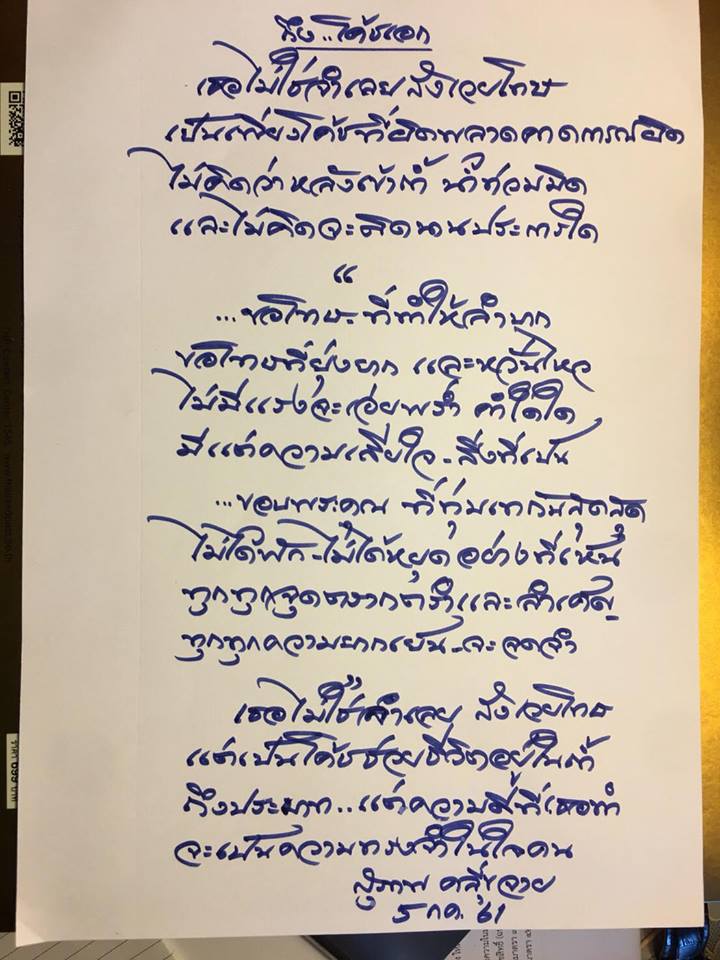 ถึง..โค้ชเอก
เธอไม่ใช่จำเลยสังเวยโทษ
เป็นเพียงโค้ชที่ผิดพลาดคาดการณ์ผิด
ไม่คิดว่าหลังเข้าถ้ำ น้ำท่วมมิด
และไม่คิดจะติดนานประการใด
“
...ขอโทษ-ที่ทำให้ลำบาก
ขอโทษที่ยุ่งยาก และหวั่นไหว
ไม่มีแรงจะเอ่ยพร่ำ คำใดใด
มีแต่ความเสียใจ-สิ่งที่เป็น
...ขอบพระคุณ ที่ทุ่มเทกันสุดสุด
ไม่ได้พัก-ไม่ได้หยุดอย่างที่เห็น
ทุกทุกจุดตรากตรำและลำเค็ญ
ทุกทุกความยากเย็น-จะจดจำ
”
เธอไม่ใช่จำเลย สังเวยโทษ
แต่เป็นโค้ชช่วยชีวิตอยู่ในถ้ำ
ถึงประมาท..แต่ความดีที่เธอทำ
จะเป็นความทรงจำในใจคน
5 กค. 61
ราคา 699 บาท